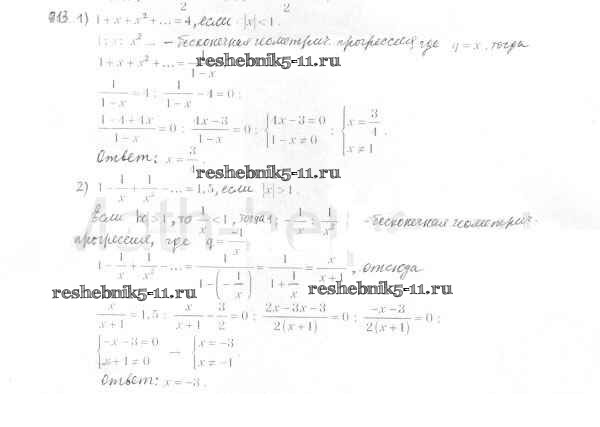 2 2
913. 1) 1 + x + x² + ... = 4, если |x| < 1.
1; x; x² ... – бесконечная геометрич. прогрессия, где q = x, тогда
1 + x + x² + ... = 1/(1 − x)
reshebnik5-11.ru
1/(1 − x) = 4; 1/(1 − x) − 4 = 0;
(1 − 4 + 4x)/(1 − x) = 0; (4x − 3)/(1 − x) = 0; { 4x − 3 = 0 1 − x ≠ 0 ; { x = 3/4 x ≠ 1 .
Ответ: x = 3/4.
reshebnik5-11.ru
2) 1 − 1/x + 1/x² − ... = 1,5, если |x| > 1.
Если |x| > 1, то 1/x < 1, тогда 1; −1/x; 1/x² – бесконечная геометрич.
прогрессия, где q = −1/x
1 − 1/x + 1/x² − ... = 1/(1 − (−1/x)) = 1/(1 + 1/x) = x/(x + 1), отсюда
reshebnik5-11.ru reshebnik5-11.ru
x/(x + 1) = 1,5; x/(x + 1) − 3/2 = 0; (2x − 3x − 3)/(2(x + 1)) = 0; (−x − 3)/(2(x + 1)) = 0;
{ −x − 3 = 0 x + 1 ≠ 0 — { x = −3 x ≠ −1 .
Ответ: x = −3.